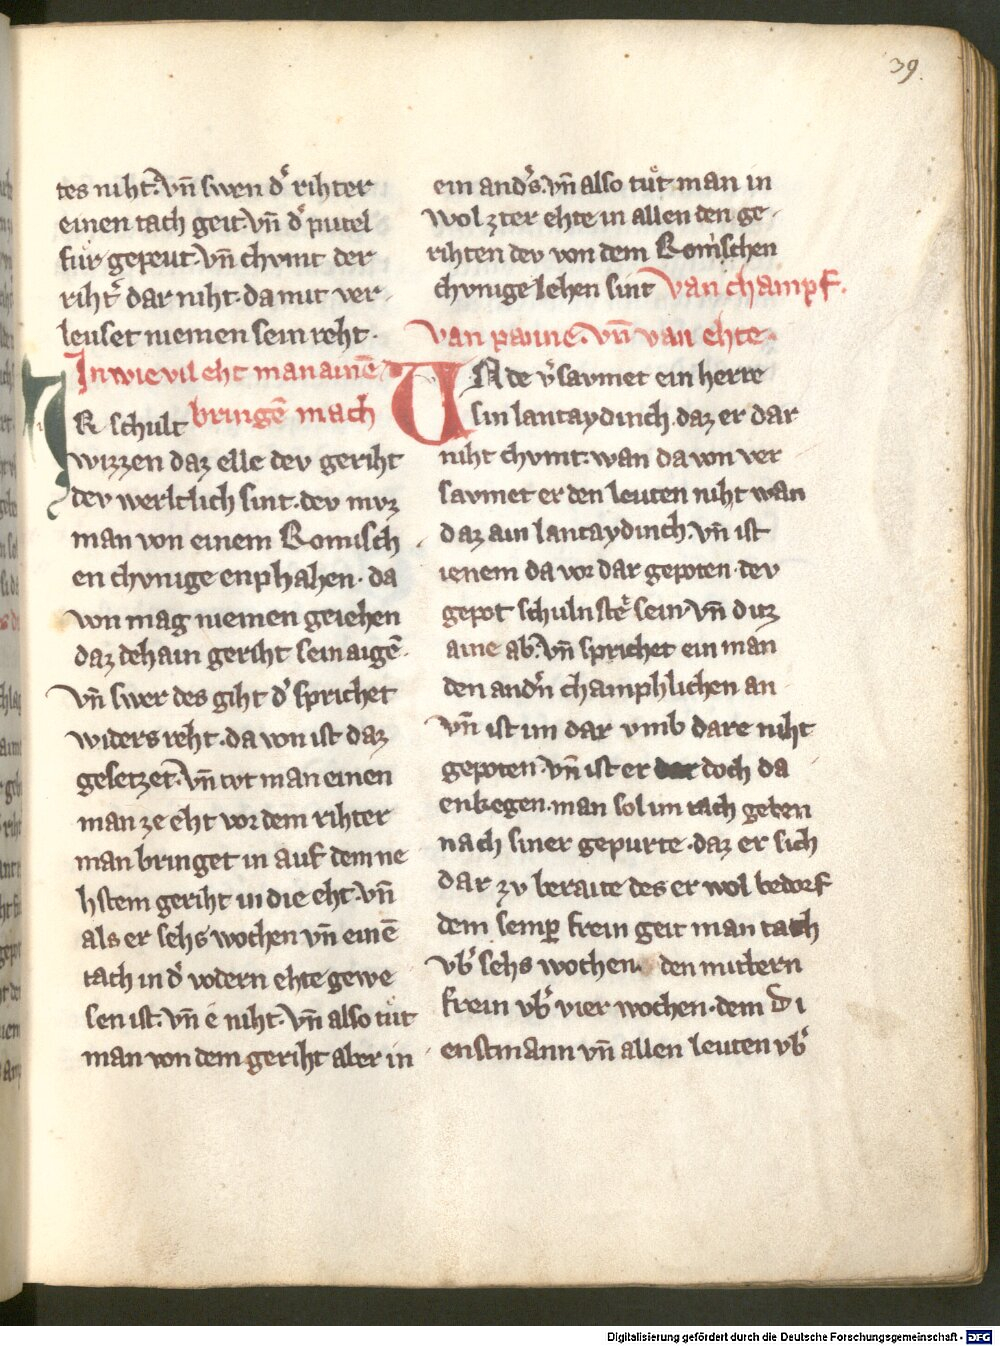 39.
tes niht. vn̄ swen d͛ rihter
einen tach geit. vn̄ d͛ putel
fuͤr gepeut. vn̄ chvmt der
riht͛ dar niht. da mit ver-
leuset niemen sein reht.
In wie vil eht man ainē
bringē mach
IR schult
wizzen daz elle dev geriht
dev werltlich sint. dev mvz
man von einem Romisch
en chvnige enphahen. da
von mag niemen geiehen
daz dehain geriht sein aigē.
vn̄ swer des giht d͛ sprichet
widers reht. da von ist daz
gesetzet. vn̄ tvt man einen
man ze eht vor dem rihter
man bringet in auf dem ne
hstem geriht in die eht. vn̄
als er sehs wochen vn̄ einē
tach in d͛ vodern ehte gewe
sen ist. vn̄ e niht. vn̄ also tuͤt
man von dem geriht aber in
ein and͛s. vn̄ also tuͤt man in
wol zter ehte in allen den ge-
rihten dev von dem Romischen
chvnige lehen sint van champf.
van panne. vn̄ van ehte.
UNde v͛savmet ein herre
sin lantaydinch. daz er dar
niht chvmt. wan da von ver
savmet er den leuten niht wan
daz ain lantaydinch. vn̄ ist
ienem da vor dar gepoten. dev
gepot schuln stet͛ sein vn̄ ditz
aine ab͛. vn̄ sprichet ein man
den and͛n champhlichen an
vn̄ ist im dar vmb dare niht
gepoten. vn̄ ist er doch da
enkegen. man sol im tach geben
nach siner gepurte. daz er sich
dar zv beraite des er wol bedorf
dem semp͛ frein geit man tach
vb͛ sehs wochen. den mitlern
frein vb͛ vier wochen. dem di
enstmann vn̄ allen leuten vb͛
Digitalisierung gefördert durch die Deutsche Forschungsgemeinschaft - DFG